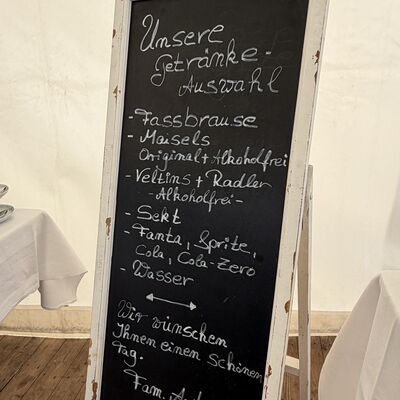 Unsere
Getränke-
Auswahl
- Fassbrause
- Maisels
Original + Alkoholfrei
- Veltins + Radler
- Alkoholfrei -
- Sekt
- Fanta, Sprite,
Cola, Cola-Zero
- Wasser
Wir wünschen
Ihnen einen schönen
Tag.
Fam.